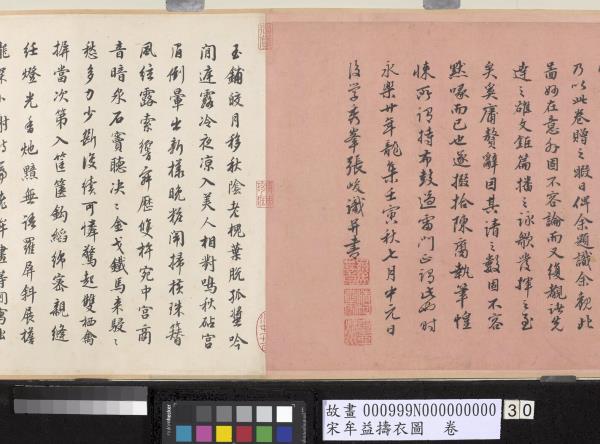 乃以此卷贈之暇日俾余題識余觀此
圖妙在意外固不容論而又復觀諸先
達之雄文鉅篇播之詠歌發揮之至
矣奚庸贅辭因其請之數固不容
默喙而已也遂掇拾陳腐執筆惶
悚所謂持布鼓過雷門正謂此而時
永樂廿年龍集壬寅秋七月中元日
後學秀峯張峻識并書
玉鋪皎月移秋陰老槐葉脫孤螿吟
閒庭露冷夜凉入美人相對鳴秋砧宮
眉倒暈出新樣晼晚閒掃梳珠簪
風絃露索響穿歷雙杵宛中宮商
音暗泉石竇聽決決金戈鐵馬來駸駸
愁多力少斷復續可憐驚起雙栖禽
摒當次第入筐篋鈎縚綿密親縫
紝燈光香灺黯無語羅屏斜展攏
故畫 000999N000000000
30
宋牟益擣衣圖 卷